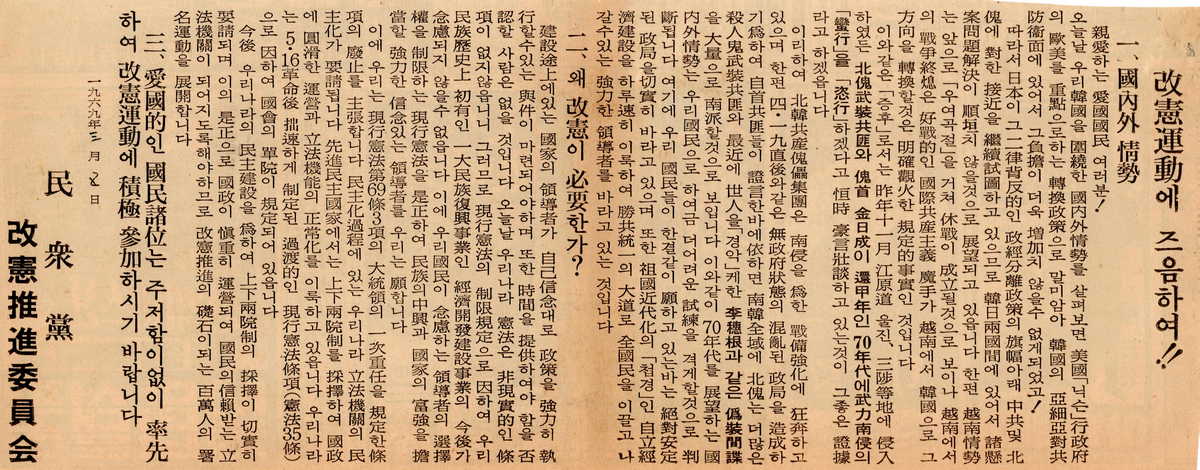 改憲運動에 즈음하여!!
一、國內外 情勢
親愛하는 愛國國民 여러분!
오늘날 우리韓國을 圍繞한 國內外情勢를 살펴보면 美國「닉슨」行政府
의 歐美를 重點으로하는 轉換政策으로 말미암아 韓國의 亞細亞對共
防衛面에 있어서 그負擔이 더욱 增加치 않을수 없게되였고!
따라서日本이 그二律背反的인 政經分離政策의 旗幅아래 中共및 北
傀에 對한 接近을 繼續試圖하고 있으므로 韓日兩國間에 있어서 諸懸
案問題解決이 順坦치 않을것으로 展望되고 있읍니다 한편 越南情勢
는 앞으로「우여곡절을 거쳐 休戰이 成立될것으로 보이나 越南에서
의 戰爭終熄은 好戰的인 國際共産主義 魔手가 越南에서 韓國으로 그
方向을 轉換할것은 明確觀火한 規定的事實인 것입니다
이와같은「증후」로서는 昨年十一月 江原道 울진、三陟等地에 侵入
하였든 北傀武裝共匪와 傀首 金日成이 還甲年인 70年代에武力南侵의
「蠻行」을「恣行」하겠다고 恒時 豪言壯談하고 있는것이 그좋은 證據
라고 하겠읍니다
이리하여 北韓共産傀儡集團은 南侵을 爲한 戰備強化에 狂奔하고
있으며 한편 四・一九直後와같은 無政府狀態의 混乱된 政局을 造成하
기爲하여 自首共匪들이 證言한바에依하면 南韓全域에 北傀는 더많은
殺人鬼武裝共匪와 最近에 世人을「경악」케한 李穗根과 같은 僞裝間諜
을 大量으로 南派할것으로 보입니다 이와같이 70年代를 展望하는 國
內外情勢는 우리國民으로 하여금 더어려운 試練을 격게할것으로 判
斷됩니다 여기에 우리 國民들이 한결같이 願하고 있는바는 絕對安定
된 政局을切實히 바라고 있으며 또한 祖國近代化의「첩경」인 自立經
濟建設을 하루速히 이룩하여 勝共統一의 大道로 全國民을 이끌고 나
갈수있는 強力한 領導者를 바라고 있는 것입니다
二、왜 改憲이 必要한가?
建設途上에있는 國家의 領導者가 自己信念대로 政策을 強力히 執
行할수있는 與件이 마련되어야하며 또한 時間을 提供하여야 함을 否
認할 사람은 없을 것입니다 오늘날 우리나라 憲法은 非現實的인 條
項이 없지않읍니다 그러므로 現行憲法의 制限規定으로 因하여 우리
民族歷史上 初有인 一大民族復興事業인 經濟開發建設事業의 今後가
念慮되지 않을수없읍니다 이에 우리國民이 念慮하는 領導者의 選擇
權을 制限하는 現行憲法을 是正하여 民族의中興과 國家의 富強을 擔
當할 強力한 信念있는 領導者를 우리는 願합니다
이에 우리는 現行憲法第69條3項의 大統領의 一次重任을 規定한條
項의 廢止를 主張합니다 民主化過程에 있는 우리나라 立法機關의 民
主化가 要請됩니다 先進民主國家에서는 上下兩院制를 採擇하여 國政
에 圓滑한 運營과 立法機能의 正常化를 이룩하고 있읍니다 우리나라
는 5・16革命後 拙速하게 制定된 過渡的인 現行憲法條項(憲法35條)
으로 因하여 國會의 單院이 規定되어 있읍니다
今後 우리나라의 民主建設을 爲하여 上下兩院制의 採擇이 切實히
要請되며 이의 是正으로 國政이 愼重히 運營되여 國民의信賴받는 立
法機關이 되어지도록해야하므로 改憲推進의 礎石이되는 百萬人의 署
名運動을 展開합니다
三、愛國的인 國民諸位는 주저함이없이 率先
하여 改憲運動에 積極 參加하시기 바랍니다
一九六九年三月 5日
民衆黨
改憲推進委員会